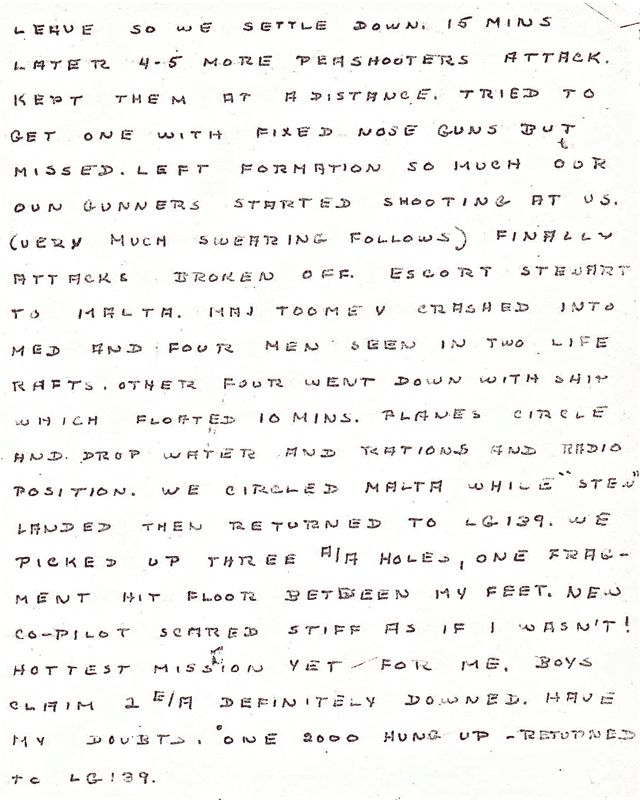 LEAVE SO WE SETTLE DOWN. 15 MINS
LATER 4-5 MORE PEASHOOTERS ATTACK.
KEPT THEM AT A DISTANCE. TRIED TO
GET ONE WITH FIXED NOSE GUNS BUT
MISSED. LEFT FORMATION SO MUCH OUR
OUN GUNNERS STARTED SHOOTING AT US.
(VERY MUCH SWEARING FOLLOWS) FINALLY
ATTACKS BROKEN OFF. ESCORT STEWART
TO MALTA. MAJ TOOMEY CRASHED INTO
MED AND FOUR MEN SEEN IN TWO LIFE
RAFTS. OTHER FOUR WENT DOWN WITH SHIP
WHICH FLOATED 10 MINS. PLANES CIRCLE
AND DROP WATER AND RATIONS AND RADIO
POSITION. WE CIRCLED MALTA WHILE "STEW"
LANDED THEN RETURNED TO LG139. WE
PICKED UP THREE A/A HOLES, ONE FRAG-
MENT HIT FLOOR BETBEEN MY FEET. NEW
CO-PILOT SCARED STIFF AS IF I WASN'T!
HOTTEST MISSION YET - FOR ME. BOYS
CLAIM 2 E/A DEFINITELY DOWNED. HAVE
MY DOUBTS. ONE 2000 HUNG UP - RETURNED
TO LG139.